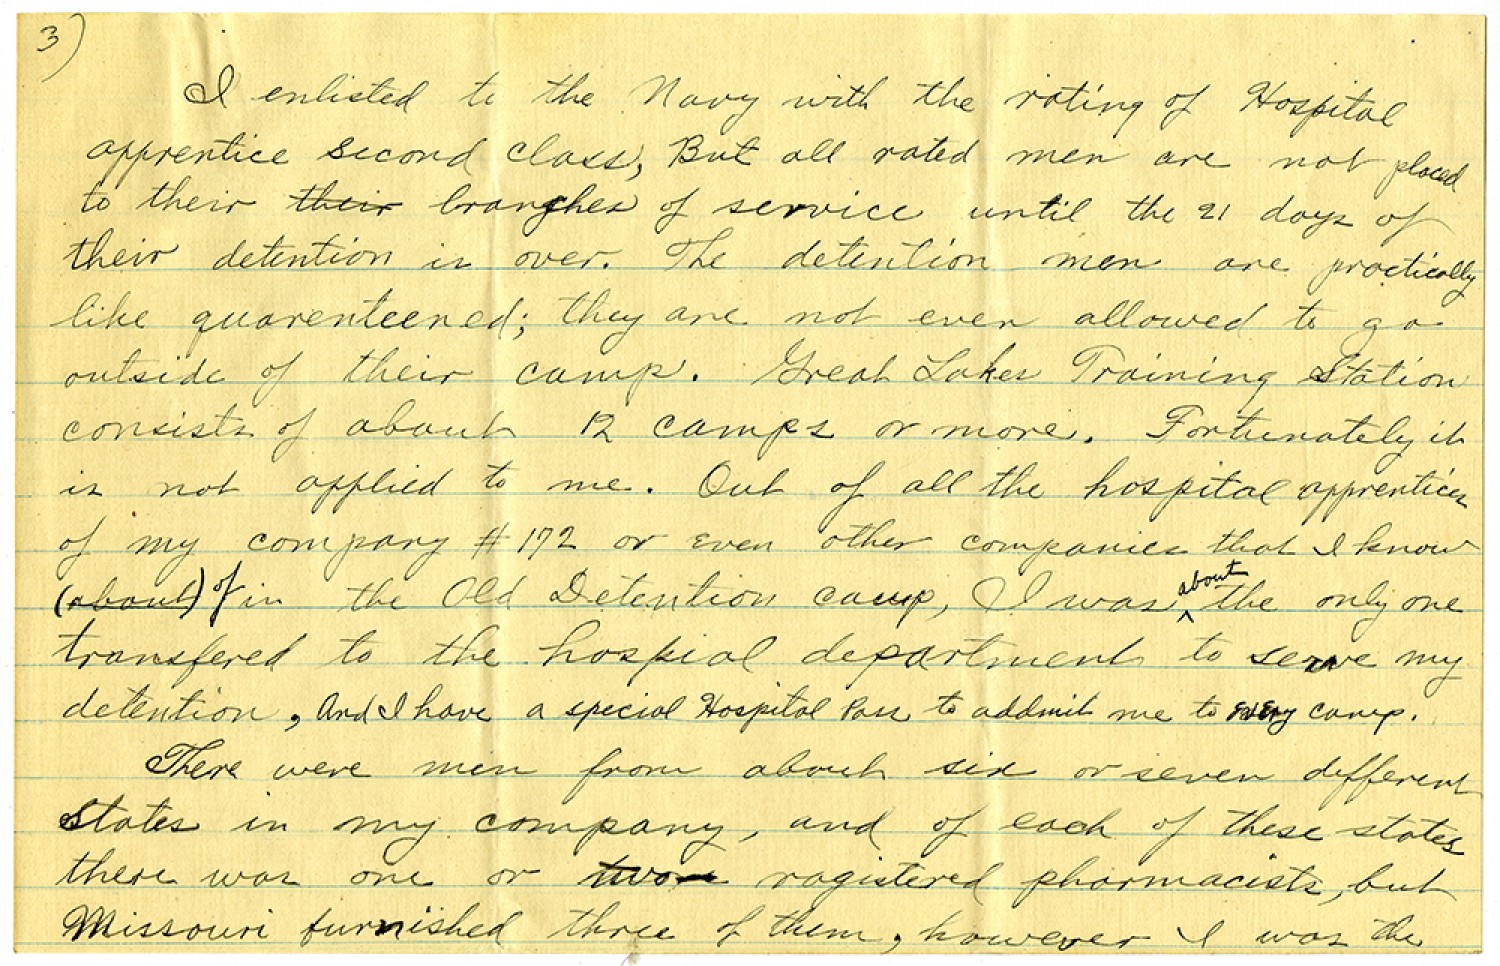 3)
I enlisted to the Navy with the rating of Hospital
apprentice second class, But all rated men are not placed
to their their branches of service until the 21 days of
their detention is over. The detention men are practically
like quarenteened; they are not even allowed to go
outside of their camp. Great Lakes Training Station
consists of about 12 camps or more. Fortunately it
is not applied to me. Out of all the hospital apprentices
of my company #172 or even other companies that I know
(about) of in the Old Detention camp, I was about the only one
transfered to the hospial department to serve my
detention, And I have a special Hospital Pass to addmit me to every camp.
There were men from about six or seven different
states in my company, and of each of these states
there was one or two ragistered pharmacists, but
Missouri furnished three of them, however I was the